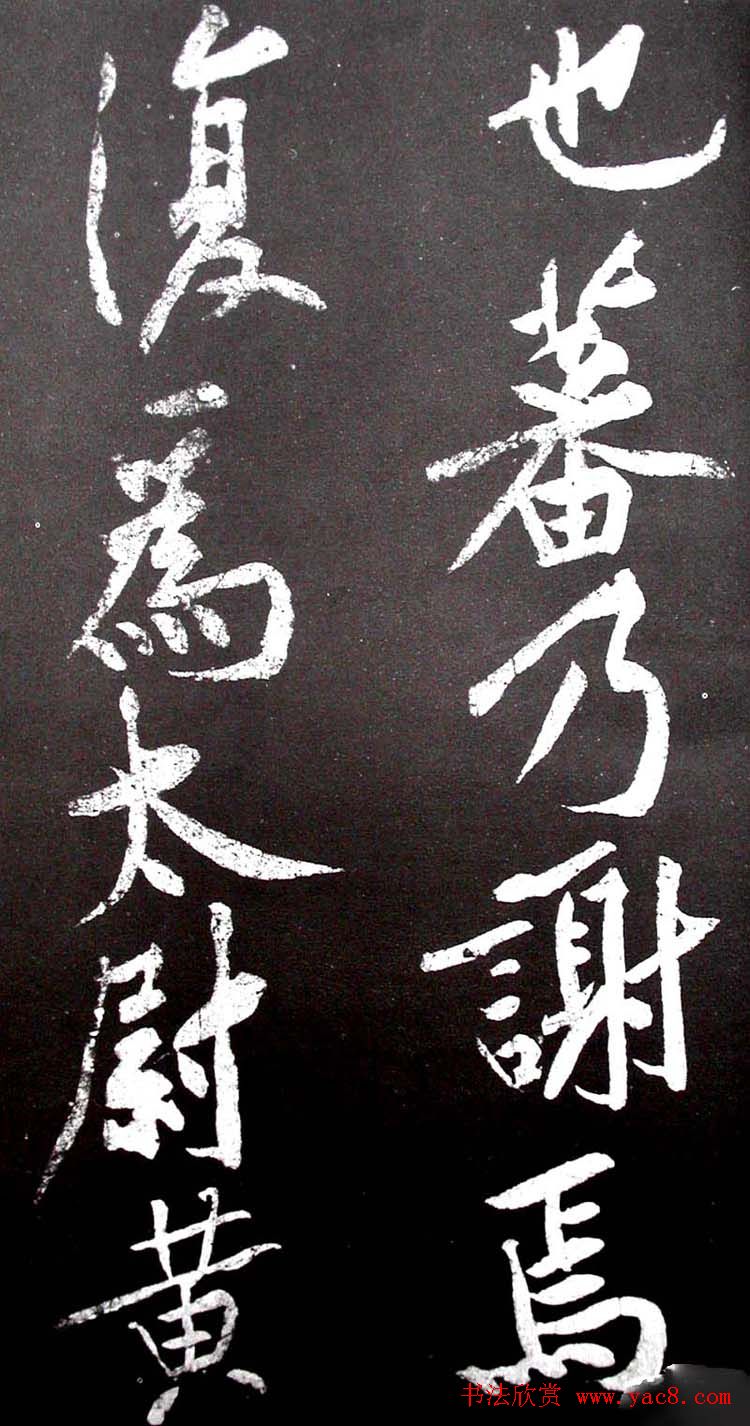 也蕃乃謝焉
復為太尉黃
书法欣赏 www.yac8.com